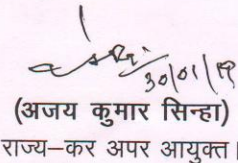 30/01/19
(अजय कुमार सिन्हा)
राज्य–कर अपर आयुक्त।